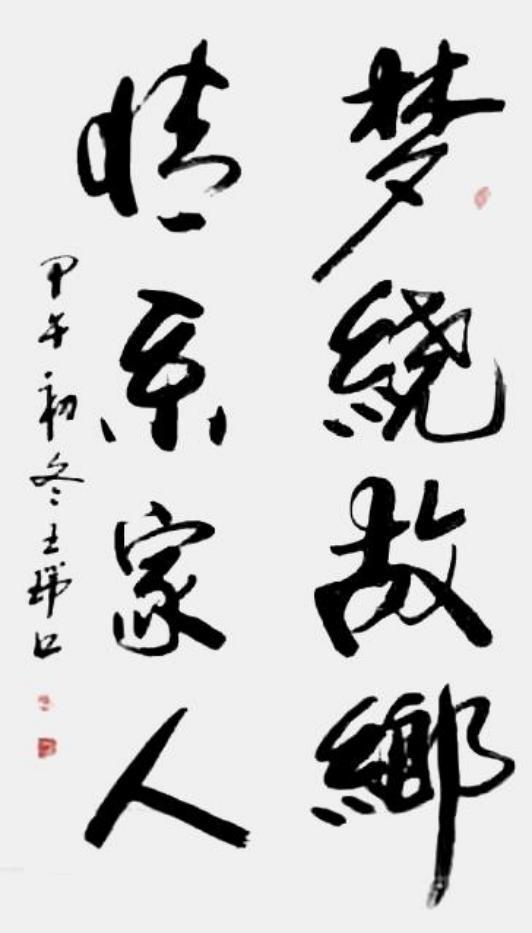 梦绕故鄉
情系家人
甲午初冬王瑞